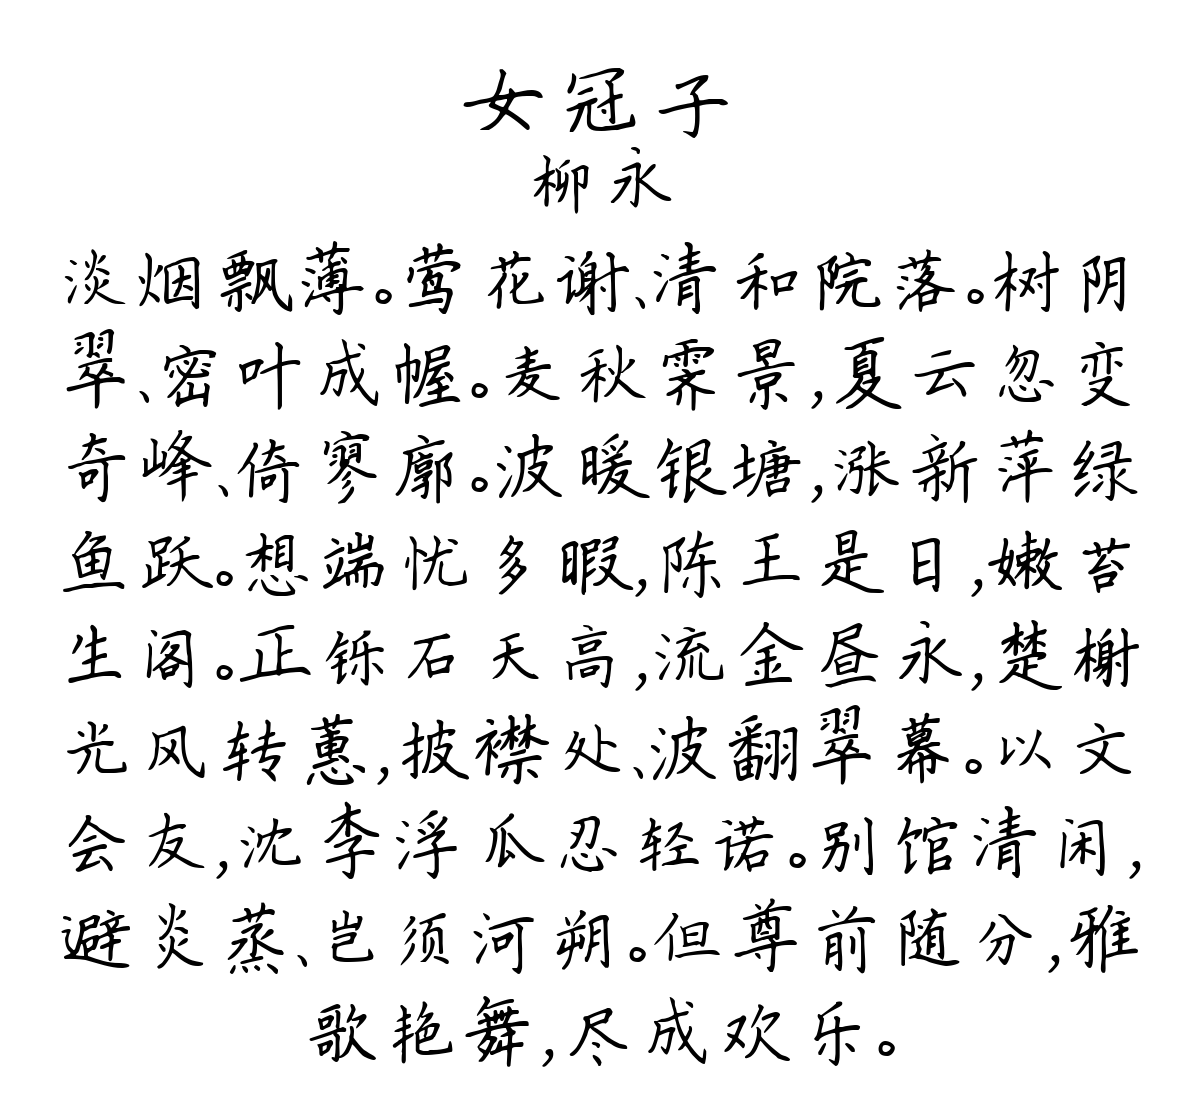 女冠子
柳永
淡烟飘薄。莺花谢、清和院落。树阴
翠、密叶成幄。麦秋霁景,夏云忽变
奇峰、倚寥廓。波暖银塘,涨新萍绿
鱼跃。想端忧多暇,陈王是日,嫩苔
生阁。正铄石天高,流金昼永,楚榭
光风转蕙,披襟处、波翻翠幕。以文
会友,沈李浮瓜忍轻诺。别馆清闲,
避炎蒸、岂须河朔。但尊前随分,雅
歌艳舞,尽成欢乐。